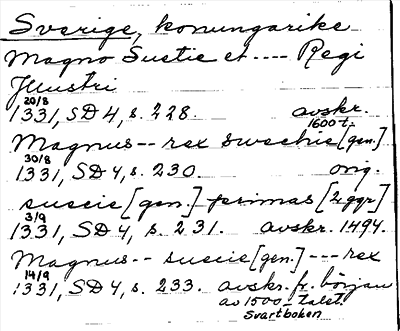 Sverige, konungarike
Magno Suetie et .... Regi
Illustri
20/8
1331, SD 4, s. 228. avskr.
1600-t.
Magnus -- rex swechie [gen.]
30/8
1331, SD 4, s. 230. orig.
suecie [gen.] primas [2 ggr]
3/9
1331, SD 4, s. 231. avskr. 1494.
Magnus -- suecie [gen.] --- rex
14/9
1331, SD 4, s. 233. avskr. fr. början
av 1500-talet.
Svartboken